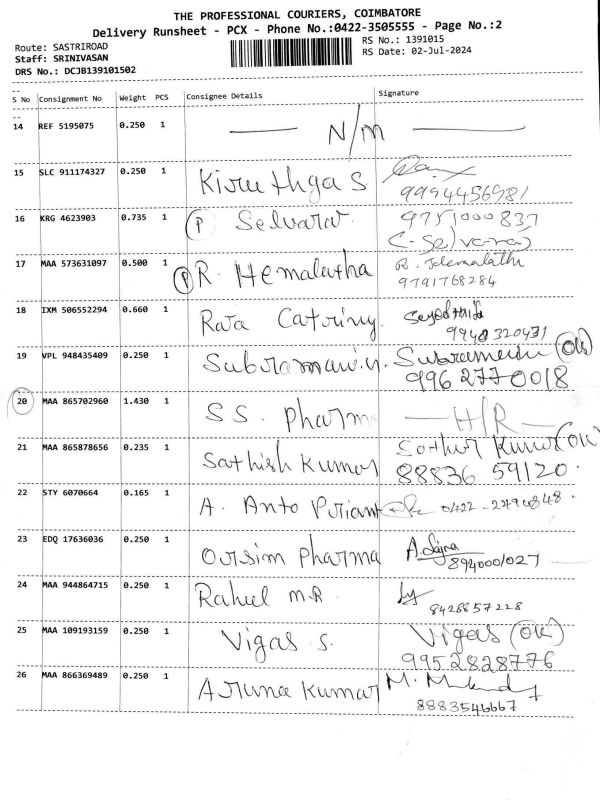 THE PROFESSIONAL COURIERS, COIMBATORE
Delivery Runsheet - PCX - Phone No.:0422-3505555 - Page No.:2
Route: SASTRIROAD
RS No.: 1391015
Staff: SRINIVASAN
RS Date: 02-Jul-2024
DRS No.: DCJB139101502
S No Consignment No Weight PCS Consignee Details Signature
14 REF 5195075 0.250 1 N/m
15 SLC 911174327 0.250 1 Kiruthga S
9994456981
16 KRG 4623903 0.735 1 (P) Selvaraj 9751000837
C. Selvaraj
17 MAA 573631097 0.500 1 (P) R. Hemalatha R. Hemalatha
9791768284
18 IXM 506552294 0.660 1 Raja Catring
9940320431
19 VPL 948435409 0.250 1 (OK)
996 277 0018
20 MAA 865702960 1.430 1 S S. Pharma H/R
21 MAA 865878656 0.235 1 Sathish Kumar Kumar (OK)
88836 59120.
22 STY 6070664 0.165 1 A. Anto
23 EDQ 17636036 0.250 1 Orsim Pharma A. Sajna
8940001027
24 MAA 944864715 0.250 1 Rahul M.R
8428857228
25 MAA 109193159 0.250 1 Vigas S. Vigas (OK)
9952828776
26 MAA 866369489 0.250 1 Aruna Kumar
8883546667